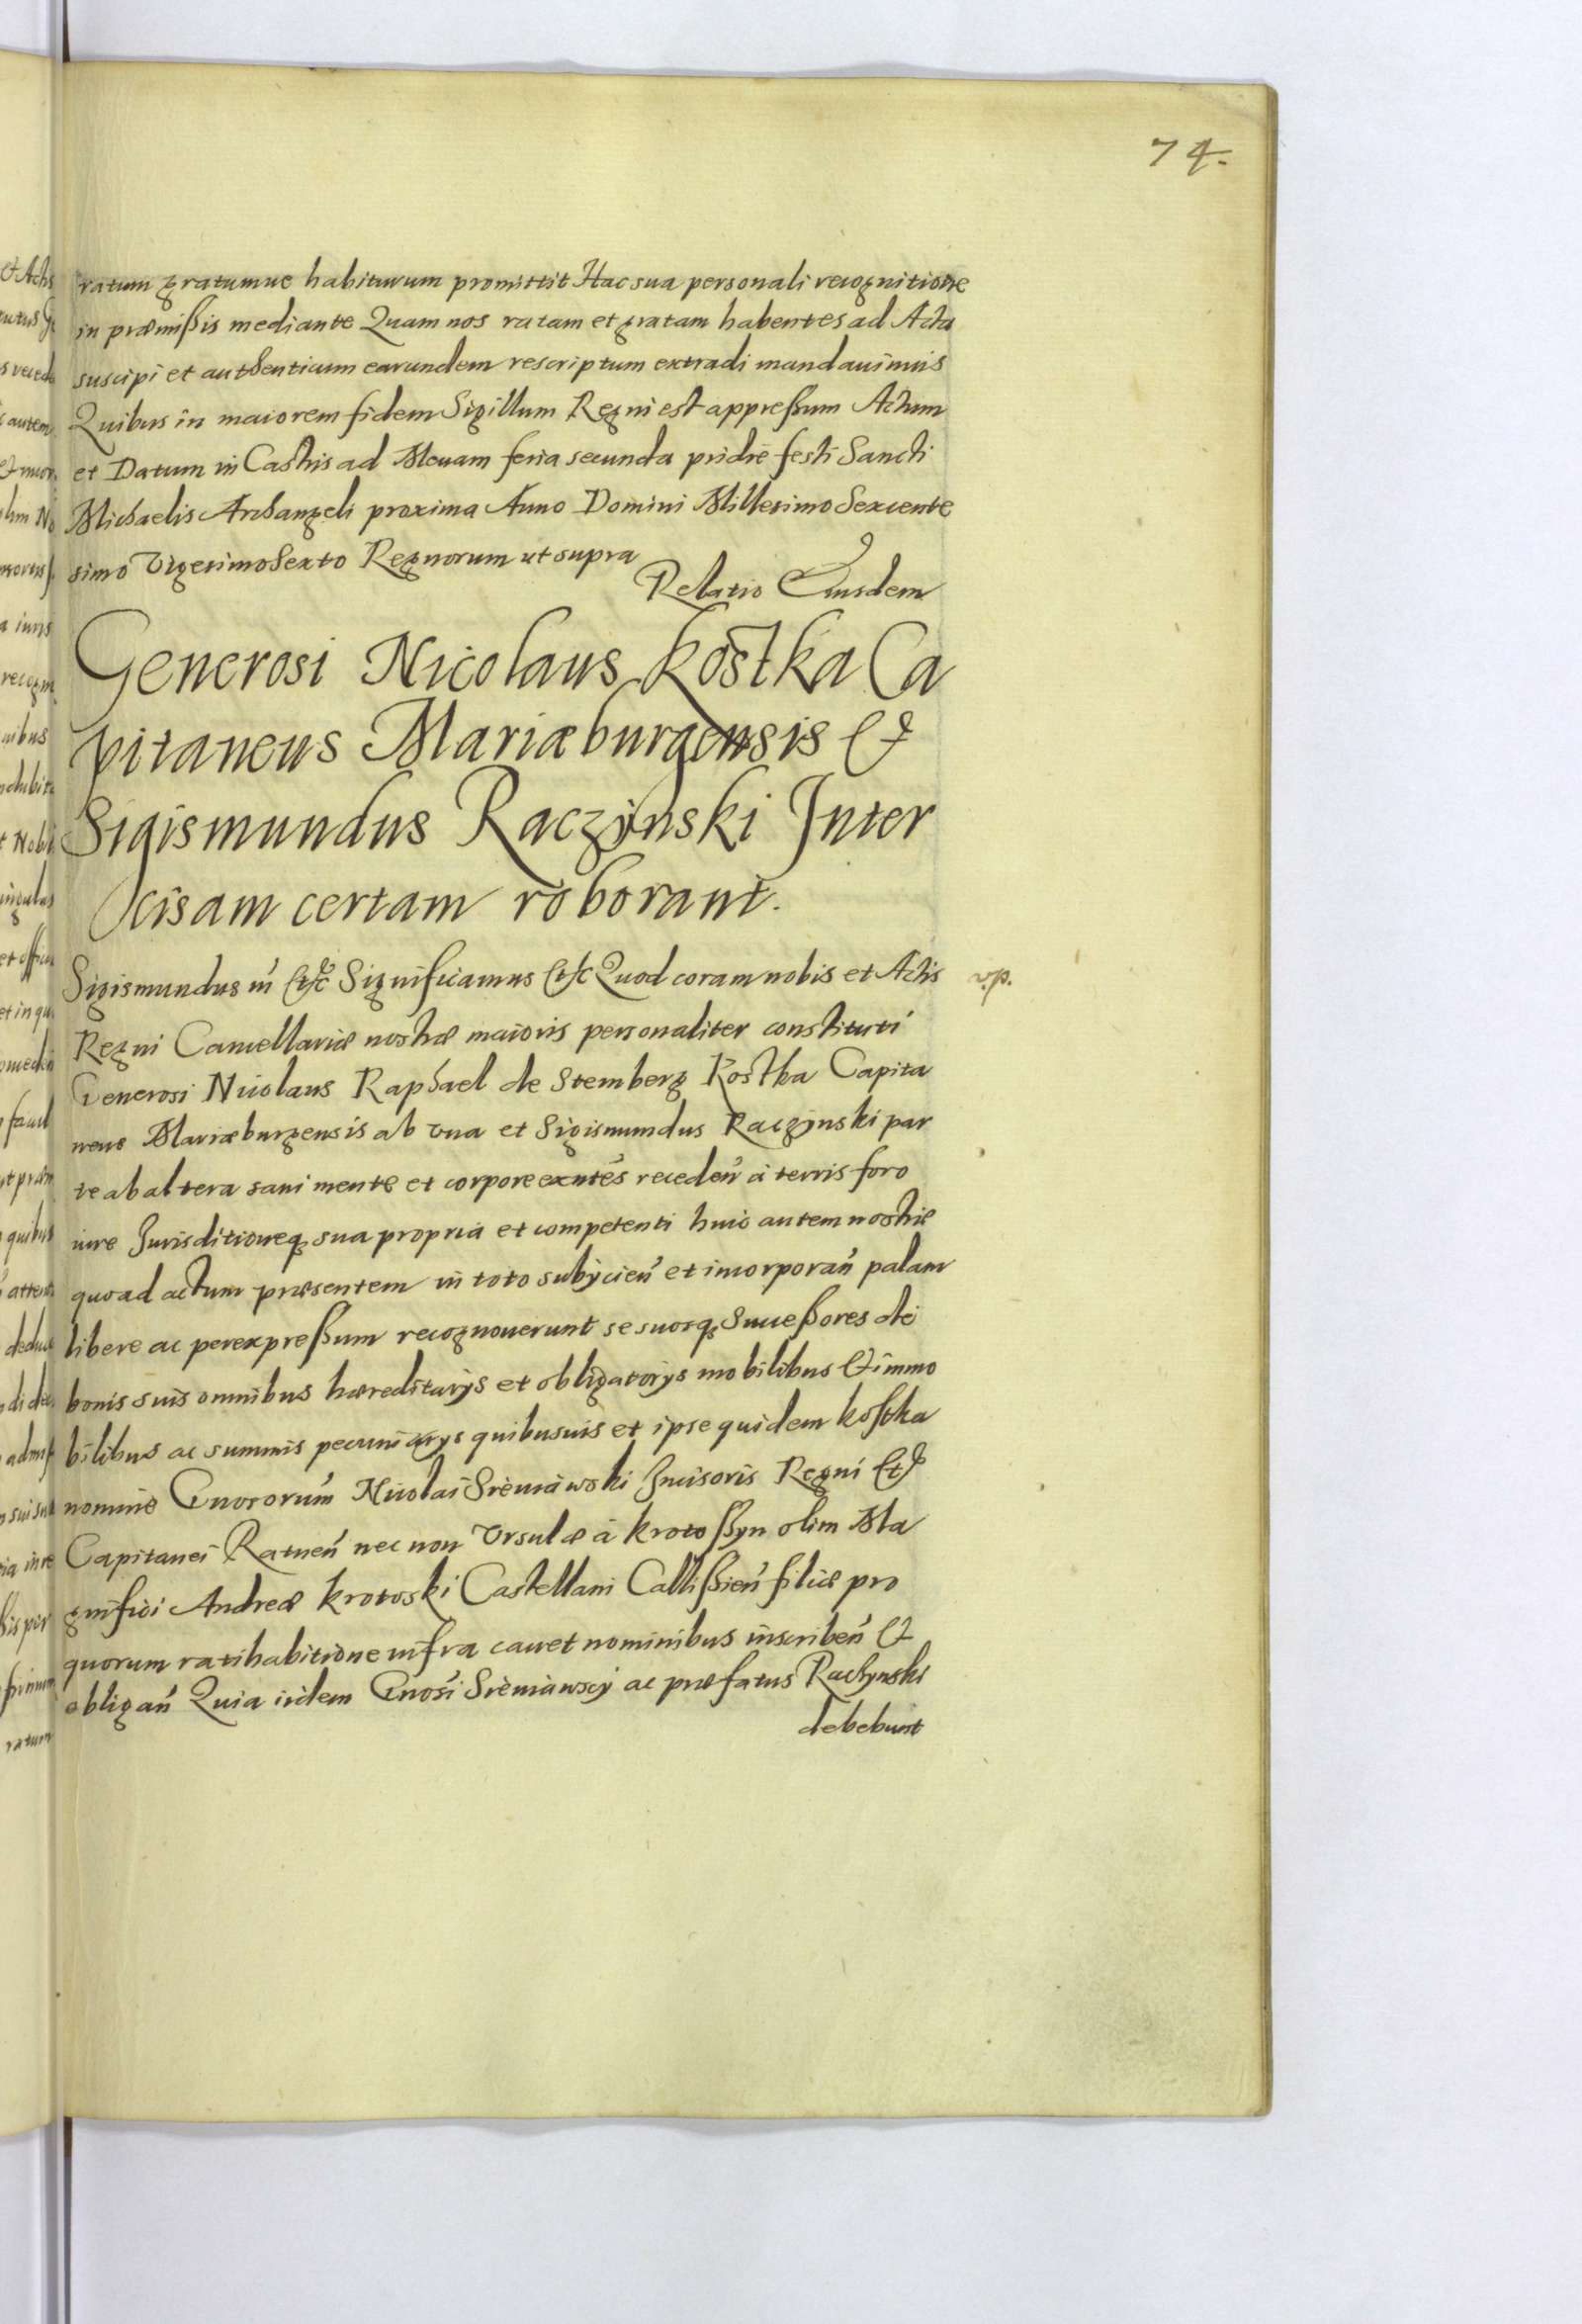 74.
ratum gratumue habiturum promittit Hac sua personali recognitione
in præmißis mediante Quam nos ratam et gratam habentes ad Acta
suscipi et authenticum earundem rescriptum extradi mandauimus
Quibus in maiorem fidem Sigillum Regni est appreßum Actum
et Datum in Castris ad Meuam feria secunda pridie festi Sancti
Michaelis Archangeli proxima Anno Domini Millesimo Sexcente
simo Vigesimo Sexto Regnorum ut supra
Relatio Eiusdem
Generosi Nicolaus Kostka Ca
pitaneus Mariæburgensis et
Sigismundus Raczÿnski Inter
cisam certam roborant.
Sigismundus III etc Significamus etc Quod coram nobis et Actis
v.p.
Regni Cancellariæ nostræ maioris personaliter constituti
Generosi Nicolaus Raphael de Stemberg Kostka Capita
neus Mariæburgensis ab vna et Sigismundus Raczÿnski par
te ab altera sani mente et corpore exntes receden̄ à terris foro
iure Jurisditioneq sua propria et competenti huic autem nostræ
quoad actum præsentem in toto subÿcien̄ et incorporan̄ palam
libere ac perexpreßum recognouerunt se suosq Succeßores de
bonis suis omnibus hæreditarÿs et obligatorÿs mobilibus et immo
bilibus ac summis pecuniarÿs quibusuis et ipse quidem Kostka
nomine Gnosorum Nicolai Sieniawski Incisoris Regni etc
Capitanei Ratnen̄ nec non Vrsulæ à Krotoßyn olim Ma
gnifici Andreæ Krotoski Castellani Callißien̄ filiæ pro
quorum ratihabitione infra cauet nominibus inscriben̄ et
obligan̄ Quia iidem Gnosi Sieniawscÿ ac præfatus Raczÿnski
debebunt